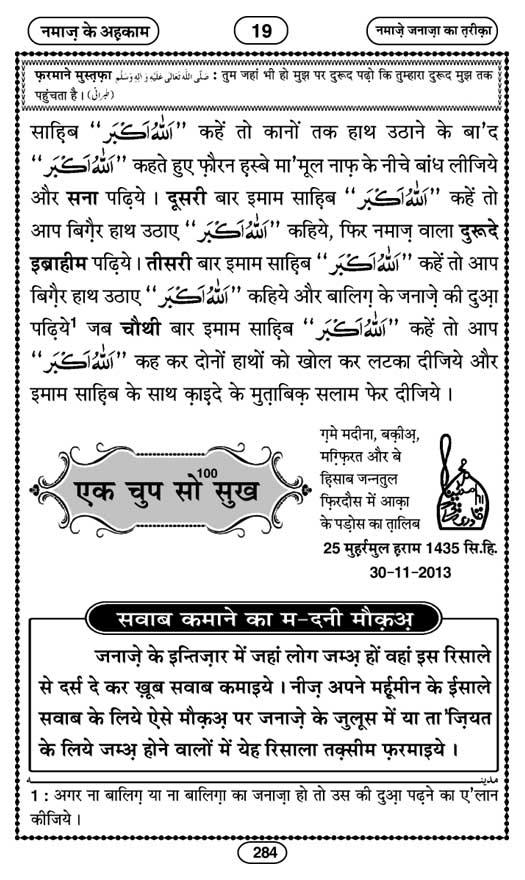 नमाज़ के अहकाम
19
नमाज़े जनाज़ा का त़रीक़ा
फ़रमाने मुस्त़फ़ा صَلَّى اللهُ تَعَالٰى عَلَيْهِ وَاٰلِهٖ وَسَلَّم : तुम जहां भी हो मुझ पर दुरूद पढ़ो कि तुम्हारा दुरूद मुझ तक
पहुंचता है । (طبرانی)
साहिब ‘‘اَللّٰهُ اَكْبَر’’ कहें तो कानों तक हाथ उठाने के बा’द
‘‘اَللّٰهُ اَكْبَر’’ कहते हुए फ़ौरन ह़स्बे मा’मूल नाफ़ के नीचे बांध लीजिये
और सना पढ़िये । दूसरी बार इमाम साहिब ‘‘اَللّٰهُ اَكْبَر’’ कहें तो
आप बिग़ैर हाथ उठाए ‘‘اَللّٰهُ اَكْبَر’’ कहिये, फिर नमाज़ वाला दुरूदे
इब्राहीम पढ़िये । तीसरी बार इमाम साहिब ‘‘اَللّٰهُ اَكْبَر’’ कहें तो आप
बिग़ैर हाथ उठाए ‘‘اَللّٰهُ اَكْبَر’’ कहिये और बालिग़ के जनाज़े की दुआ़
पढ़िये¹ जब चौथी बार इमाम साहिब ‘‘اَللّٰهُ اَكْبَر’’ कहें तो आप
‘‘اَللّٰهُ اَكْبَر’’ कह कर दोनों हाथों को खोल कर लटका दीजिये और
इमाम साहिब के साथ क़ाइदे के मुत़ाबिक़ सलाम फेर दीजिये ।
एक चुप सो¹⁰⁰ सुख
ग़मे मदीना, बक़ीअ़,
मग़्फ़िरत और बे
हि़साब जन्नतुल
फ़िरदौस में आक़ा
के पड़ोस का त़ालिब
25 मुह़र्रमुल ह़राम 1435 सि.हि.
30-11-2013
सवाब कमाने का म-दनी मौक़अ़
जनाज़े के इन्तिज़ार में जहां लोग जम्अ़ हों वहां इस रिसाले
से दर्स दे कर ख़ूब सवाब कमाइये । नीज़ अपने मर्हूमीन के ईसाले
सवाब के लिये ऐसे मौक़अ़ पर जनाज़े के जुलूस में या ता’ज़ियत
के लिये जम्अ़ होने वालों में येह रिसाला तक़्सीम फ़रमाइये ।
مدینہ
1 : अगर ना बालिग़ या ना बालिग़ा का जनाज़ा हो तो उस की दुआ़ पढ़ने का ए’लान
कीजिये ।
284